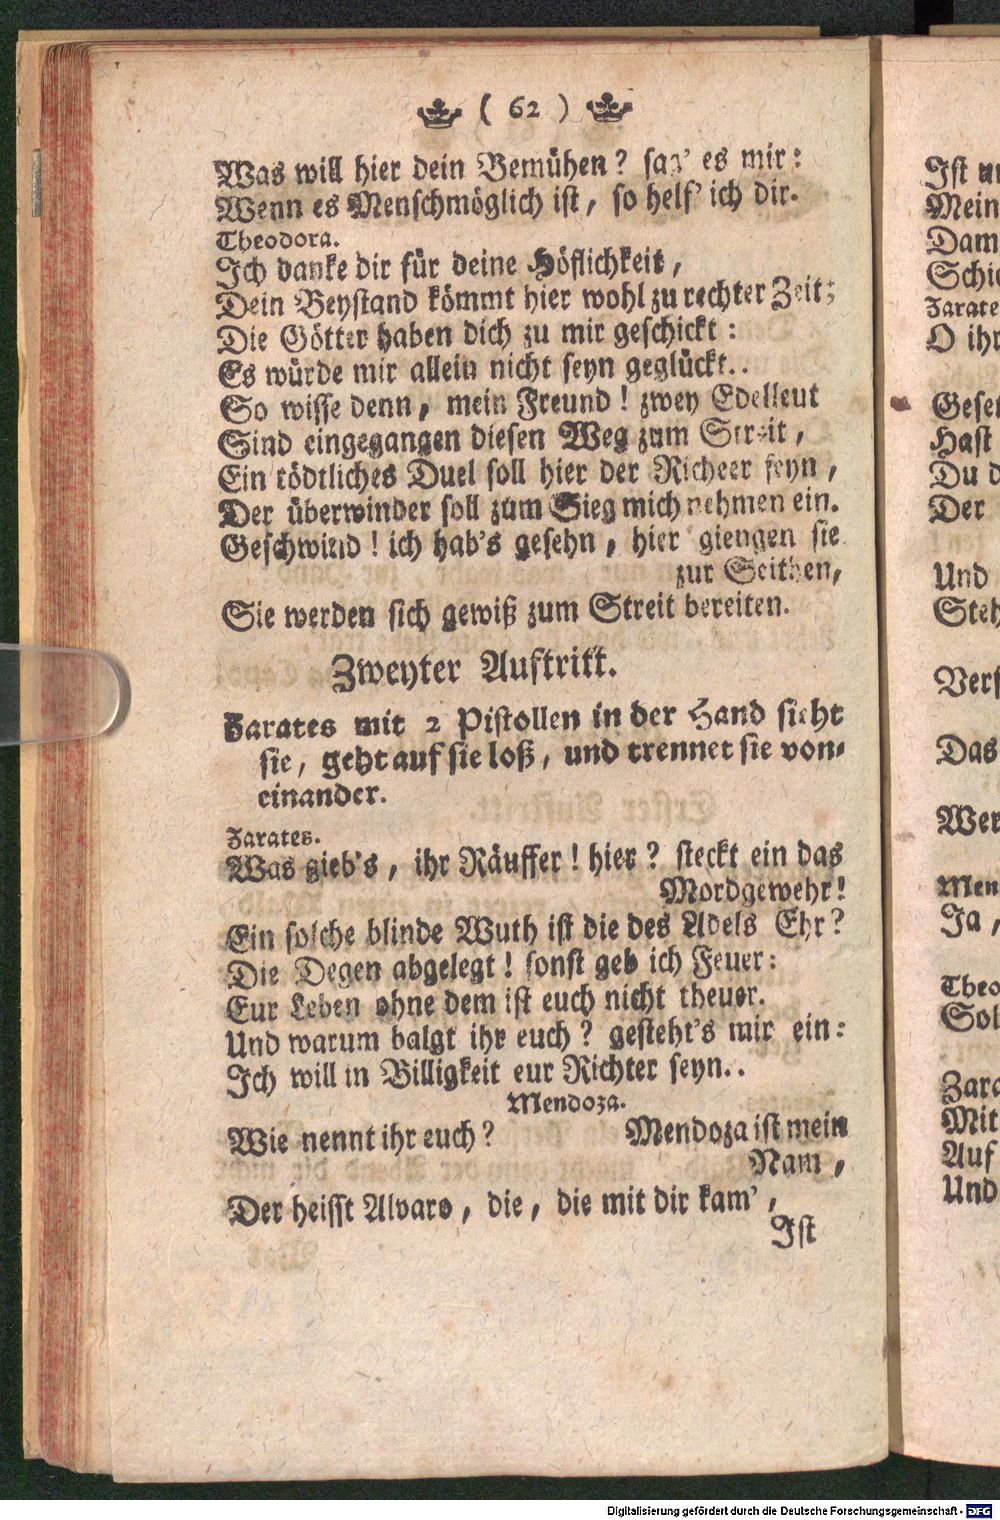 ( 62 )
Was will hier dein Bemühen? sag' es mir:
Wenn es Menschmöglich ist, so helf' ich dir.
Theodora.
Ich danke dir für deine Höflichkeit,
Dein Beystand kömmt hier wohl zu rechter Zeit;
Die Götter haben dich zu mir geschickt:
Es würde mir allein nicht seyn geglückt..
So wisse denn, mein Freund! zwey Edelleut
Sind eingegangen diesen Weg zum Streit,
Ein tödtliches Duel soll hier der Richter seyn,
Der überwinder soll zum Sieg mich nehmen ein.
Geschwind! ich hab's gesehn, hier giengen sie
zur Seithen,
Sie werden sich gewiß zum Streit bereiten.
Zweyter Auftritt.
Zarates mit 2 Pistollen in der Hand sieht
sie, geht auf sie loß, und trennet sie von-
einander.
Zarates.
Was gieb's, ihr Räuffer! hier? steckt ein das
Mordgewehr!
Ein solche blinde Wuth ist die des Adels Ehr?
Die Degen abgelegt! sonst geb ich Feuer:
Eur Leben ohne dem ist euch nicht theuer.
Und warum balgt ihr euch? gesteht's mir ein:
Ich will in Billigkeit eur Richter seyn..
Mendoza.
Wie nennt ihr euch? Mendoza ist mein
Nam,
Der heisst Alvaro, die, die mit dir kam',
Ist
Ist
Mein
Dam
Schi
Zarate
O ihr
Gese
Hast
Du
Der
Und
Steh
Vers
Das
Wer
Men
Ja,
Theo
Sol
Zara
Mit
Auf
Und
Digitalisierung gefördert durch die Deutsche Forschungsgemeinschaft - DFG